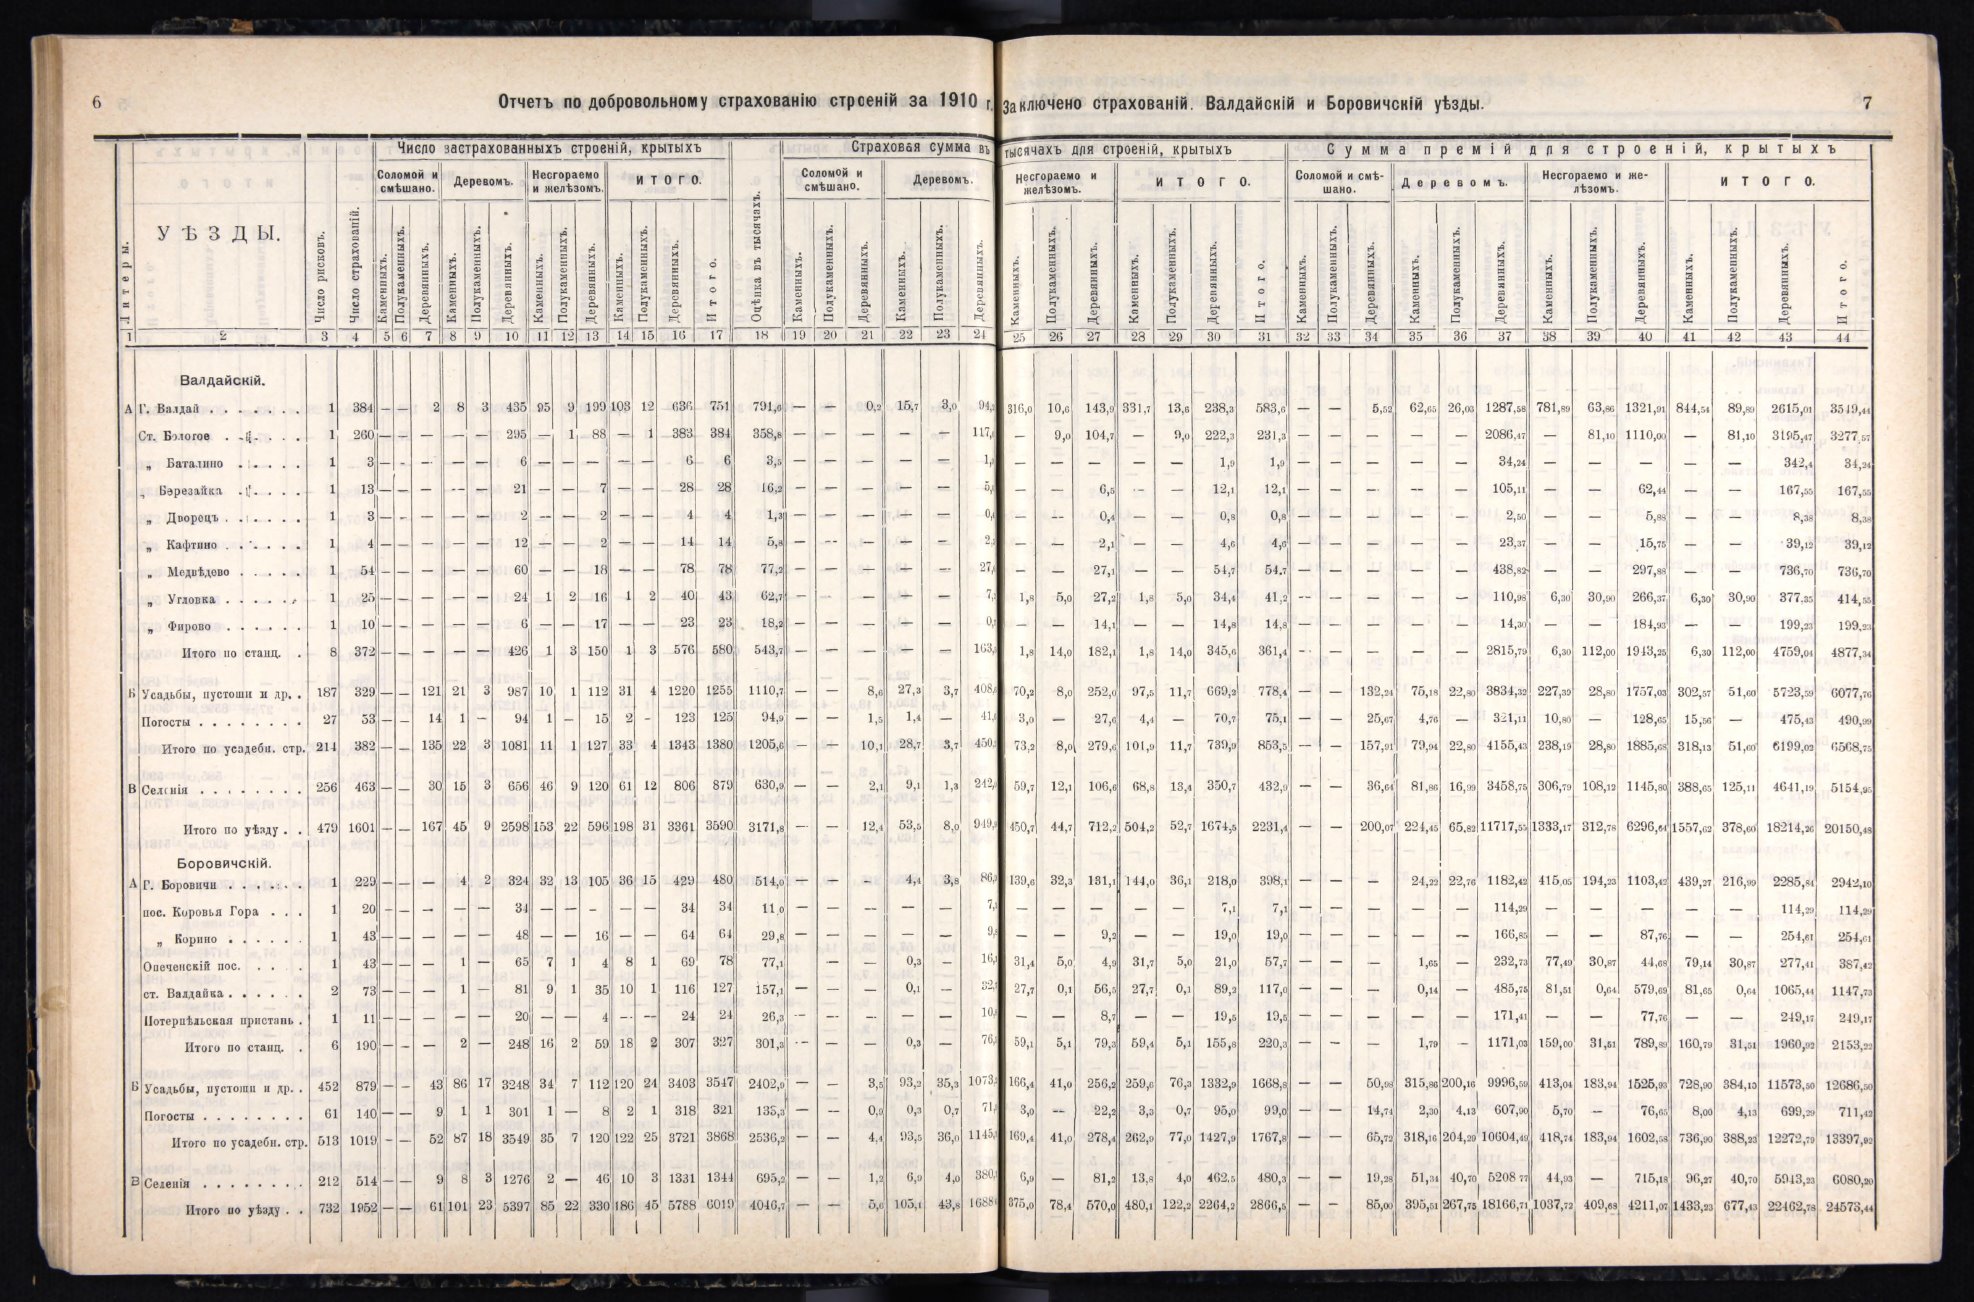 6
Отчетъ по добровольному страхованію строеній за 1910 г.
Заключено страхованій. Валдайскій и Боровичскій уѣзды.
7
Число застрахованныхъ строеній, крытыхъ
Страховая сумма въ тысячахъ для строеній, крытыхъ
Сумма премій для строеній, крытыхъ
Литеры.
УѢЗДЫ.
Число рисковъ.
Число страхованій.
Соломой и смѣшано.
Деревомъ.
Несгораемо и желѣзомъ.
ИТОГО.
Оцѣнка въ тысячахъ.
Соломой и смѣшано.
Деревомъ.
Несгораемо и желѣзомъ.
ИТОГО.
Соломой и смѣшано.
Деревомъ.
Несгораемо и желѣзомъ.
ИТОГО.
Каменныхъ. Полукаменныхъ. Деревянныхъ. Каменныхъ. Полукаменныхъ. Деревянныхъ. Каменныхъ. Полукаменныхъ. Деревянныхъ. Каменныхъ. Полукаменныхъ. Деревянныхъ. Итого.
Каменныхъ. Полукаменныхъ. Деревянныхъ. Каменныхъ. Полукаменныхъ. Деревянныхъ. Каменныхъ. Полукаменныхъ. Деревянныхъ. Каменныхъ. Полукаменныхъ. Деревянныхъ. Итого.
Каменныхъ. Полукаменныхъ. Деревянныхъ. Каменныхъ. Полукаменныхъ. Деревянныхъ. Каменныхъ. Полукаменныхъ. Деревянныхъ. Каменныхъ. Полукаменныхъ. Деревянныхъ. Итого.
1 2 3 4 5 6 7 8 9 10 11 12 13 14 15 16 17 18 19 20 21 22 23 24 25 26 27 28 29 30 31 32 33 34 35 36 37 38 39 40 41 42 43 44
Валдайскій.
А Г. Валдай 1 384 — — 2 8 3 435 95 9 199 103 12 636 751 791,6 — — 0,2 15,7 3,0 94, 316,0 10,6 143,9 331,7 13,6 238,3 583,6 — — 5,52 62,65 26,03 1287,58 781,89 63,86 1321,91 844,54 89,89 2615,01 3549,44
Ст. Бологое 1 260 — — — — — 295 — 1 88 — 1 383 384 358,8 — — — — — 117, — 9,0 104,7 — 9,0 222,3 231,3 — — — — — 2086,47 — 81,10 1110,00 — 81,10 3195,47 3277,57
„ Баталино 1 3 — — — — — 6 — — — — — 6 6 3,5 — — — — — 1, — — — — — 1,9 1,9 — — — — — 34,24 — — — — — 342,4 34,24
„ Березайка 1 13 — — — — — 21 — — 7 — — 28 28 16,2 — — — — — 5, — — 6,5 — — 12,1 12,1 — — — — — 105,11 — — 62,44 — — 167,55 167,55
„ Дворецъ 1 3 — — — — — 2 — — 2 — — 4 4 1,3 — — — — — 0, — — 0,4 — — 0,8 0,8 — — — — — 2,50 — — 5,88 — — 8,38 8,38
„ Кафтино 1 4 — — — — — 12 — — 2 — — 14 14 5,8 — — — — — 2, — — 2,1 — — 4,6 4,6 — — — — — 23,37 — — 15,75 — — 39,12 39,12
„ Медвѣдево 1 54 — — — — — 60 — — 18 — — 78 78 77,2 — — — — — 27, — — 27,1 — — 54,7 54,7 — — — — — 438,82 — — 297,88 — — 736,70 736,70
„ Угловка 1 25 — — — — — 24 1 2 16 1 2 40 43 62,7 — — — — — 7, 1,8 5,0 27,2 1,8 5,0 34,4 41,2 — — — — — 110,98 6,30 30,90 266,37 6,30 30,90 377,35 414,55
„ Фирово 1 10 — — — — — 6 — — 17 — — 23 23 18,2 — — — — — 0, — — 14,1 — — 14,8 14,8 — — — — — 14,30 — — 184,93 — — 199,23 199,23
Итого по станц. 8 372 — — — — — 426 1 3 150 1 3 576 580 543,7 — — — — — 163, 1,8 14,0 182,1 1,8 14,0 345,6 361,4 — — — — — 2815,79 6,30 112,00 1943,25 6,30 112,00 4759,04 4877,34
Б Усадьбы, пустоши и др. 187 329 — — 121 21 3 987 10 1 112 31 4 1220 1255 1110,7 — — 8,6 27,3 3,7 408, 70,2 8,0 252,0 97,5 11,7 669,2 778,4 — — 132,24 75,18 22,80 3834,32 227,39 28,80 1757,03 302,57 51,60 5723,59 6077,76
Погосты 27 53 — — 14 1 — 94 1 — 15 2 — 123 125 94,9 — — 1,5 1,4 — 41, 3,0 — 27,6 4,4 — 70,7 75,1 — — 25,67 4,76 — 321,11 10,80 — 128,65 15,56 — 475,43 490,99
Итого по усадебн. стр. 214 382 — — 135 22 3 1081 11 1 127 33 4 1343 1380 1205,6 — — 10,1 28,7 3,7 450, 73,2 8,0 279,6 101,9 11,7 739,9 853,5 — — 157,91 79,94 22,80 4155,43 238,19 28,80 1885,68 318,13 51,60 6199,02 6568,75
В Селенія 256 463 — — 30 15 3 656 46 9 120 61 12 806 879 630,9 — — 2,1 9,1 1,3 242, 59,7 12,1 106,6 68,8 13,4 350,7 432,9 — — 36,64 81,86 16,99 3458,75 306,79 108,12 1145,80 388,65 125,11 4641,19 5154,95
Итого по уѣзду 479 1601 — — 167 45 9 2598 153 22 596 198 31 3361 3590 3171,8 — — 12,4 53,5 8,0 949, 450,7 44,7 712,2 504,2 52,7 1674,5 2231,4 — — 200,07 224,45 65,82 11717,55 1333,17 312,78 6296,64 1557,62 378,60 18214,26 20150,48
Боровичскій.
А Г. Боровичи 1 229 — — — 4 2 324 32 13 105 36 15 429 480 514,0 — — - 4,4 3,8 86, 139,6 32,3 131,1 144,0 36,1 218,0 398,1 — — — 24,22 22,76 1182,42 415,05 194,23 1103,42 439,27 216,99 2285,84 2942,10
пос. Коровья Гора 1 20 — — — — — 34 — — - — — 34 34 11,0 — — — — — 7, — — — — — 7,1 7,1 — — — — — 114,29 — — — — — 114,29 114,29
„ Корино 1 43 — — — — — 48 — — 16 — — 64 64 29,8 — — — — — 9, — — 9,2 — — 19,0 19,0 — — — — — 166,85 — — 87,76 — — 254,61 254,61
Опеченскій пос. 1 43 — — — 1 — 65 7 1 4 8 1 69 78 77,1 — — — 0,3 — 16, 31,4 5,0 4,9 31,7 5,0 21,0 57,7 — — — 1,65 — 232,73 77,49 30,87 44,68 79,14 30,87 277,41 387,42
ст. Валдайка 2 73 — — — 1 — 81 9 1 35 10 1 116 127 157,1 — — — 0,1 — 32, 27,7 0,1 56,5 27,7 0,1 89,2 117,0 — — — 0,14 — 485,75 81,51 0,64 579,69 81,65 0,64 1065,44 1147,73
Потерпѣльская пристань 1 11 — — — — — 20 — — 4 — — 24 24 26,3 — — — — — 10, — — 8,7 — — 19,5 19,5 — — — — — 171,41 — — 77,76 — — 249,17 249,17
Итого по станц. 6 190 — — — 2 — 248 16 2 59 18 2 307 327 301,3 — — — 0,3 — 76, 59,1 5,1 79,3 59,4 5,1 155,8 220,3 — — — 1,79 — 1171,03 159,00 31,51 789,89 160,79 31,51 1960,92 2153,22
Б Усадьбы, пустоши и др. 452 879 — — 43 86 17 3248 34 7 112 120 24 3403 3547 2402,9 — — 3,5 93,2 35,3 1073, 166,4 41,0 256,2 259,6 76,3 1332,9 1668,8 — — 50,98 315,86 200,16 9996,59 413,04 183,94 1525,93 728,90 384,10 11573,50 12686,50
Погосты 61 140 — — 9 1 1 301 1 — 8 2 1 318 321 133,3 — — 0,9 0,3 0,7 71, 3,0 — 22,2 3,3 0,7 95,0 99,0 — — 14,74 2,30 4,13 607,90 5,70 — 76,65 8,00 4,13 699,29 711,42
Итого по усадебн. стр. 513 1019 — — 52 87 18 3549 35 7 120 122 25 3721 3868 2536,2 — — 4,4 93,5 36,0 1145, 169,4 41,0 278,4 262,9 77,0 1427,9 1767,8 — — 65,72 318,16 204,29 10604,49 418,74 183,94 1602,58 736,90 388,23 12272,79 13397,92
В Селенія 212 514 — — 9 8 3 1276 2 — 46 10 3 1331 1344 695,2 — — 1,2 6,9 4,0 380, 6,9 — 81,2 13,8 4,0 462,5 480,3 — — 19,28 51,34 40,70 5208,77 44,93 — 715,18 96,27 40,70 5943,23 6080,20
Итого по уѣзду 732 1952 — — 61 101 23 5397 85 22 330 186 45 5788 6019 4046,7 — — 5,6 105,1 43,8 1688, 375,0 78,4 570,0 480,1 122,2 2264,2 2866,5 — — 85,00 395,51 267,75 18166,71 1037,72 409,68 4211,07 1433,23 677,43 22462,78 24573,44